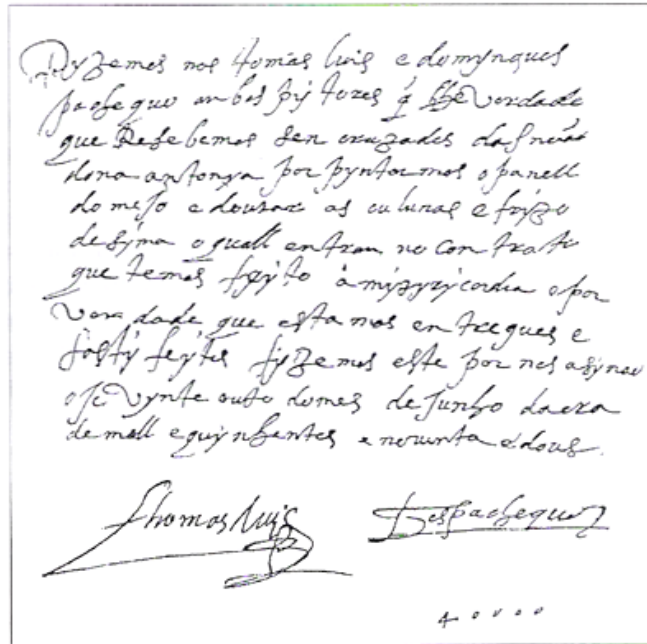 Dyzemos nos tomas luis e domyngues
pachequo anbos pytores q̃ he verdade
que Resebemos sen cruzados da snõra
dona antonya por pyntarmos o panell
do mejo e dourar as culunas e frizo
de syma o quall entrou no contrato
que temos feyto a mizyricordia e por
verdade que estamos entregues e
feytos fyzemos este por nos asynado
oje vynte outo do mes de Junho da era
de mill e quynhentos e noventa e dous.
Thomas luis
Dos pachequo
40000